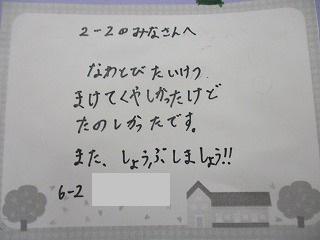 2-2のみなさんへ
なわとびたいけつ
まけてくやしかったけど
たのしかったです。
また、しょうぶしましょう!!
6-2